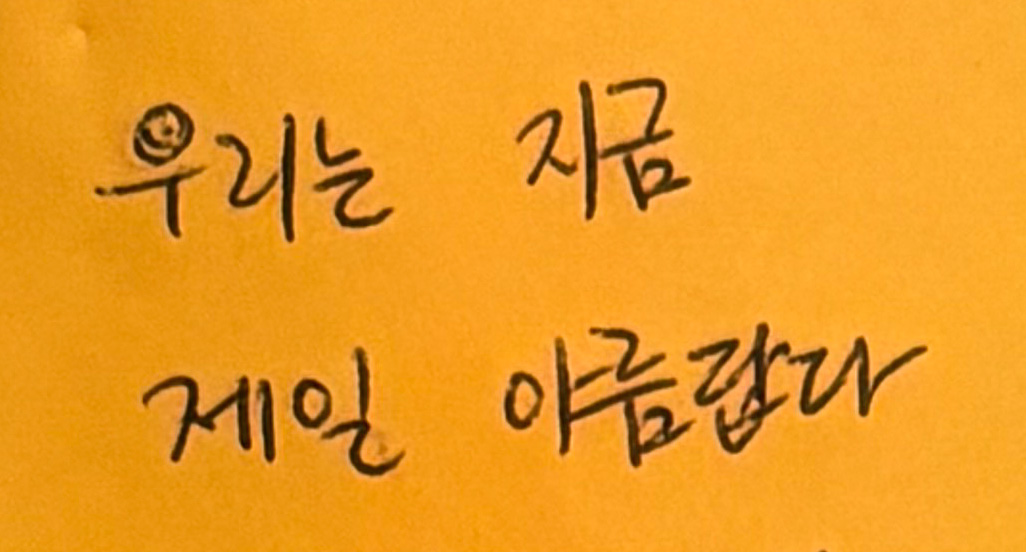 우리는 지금
제일 아름답다